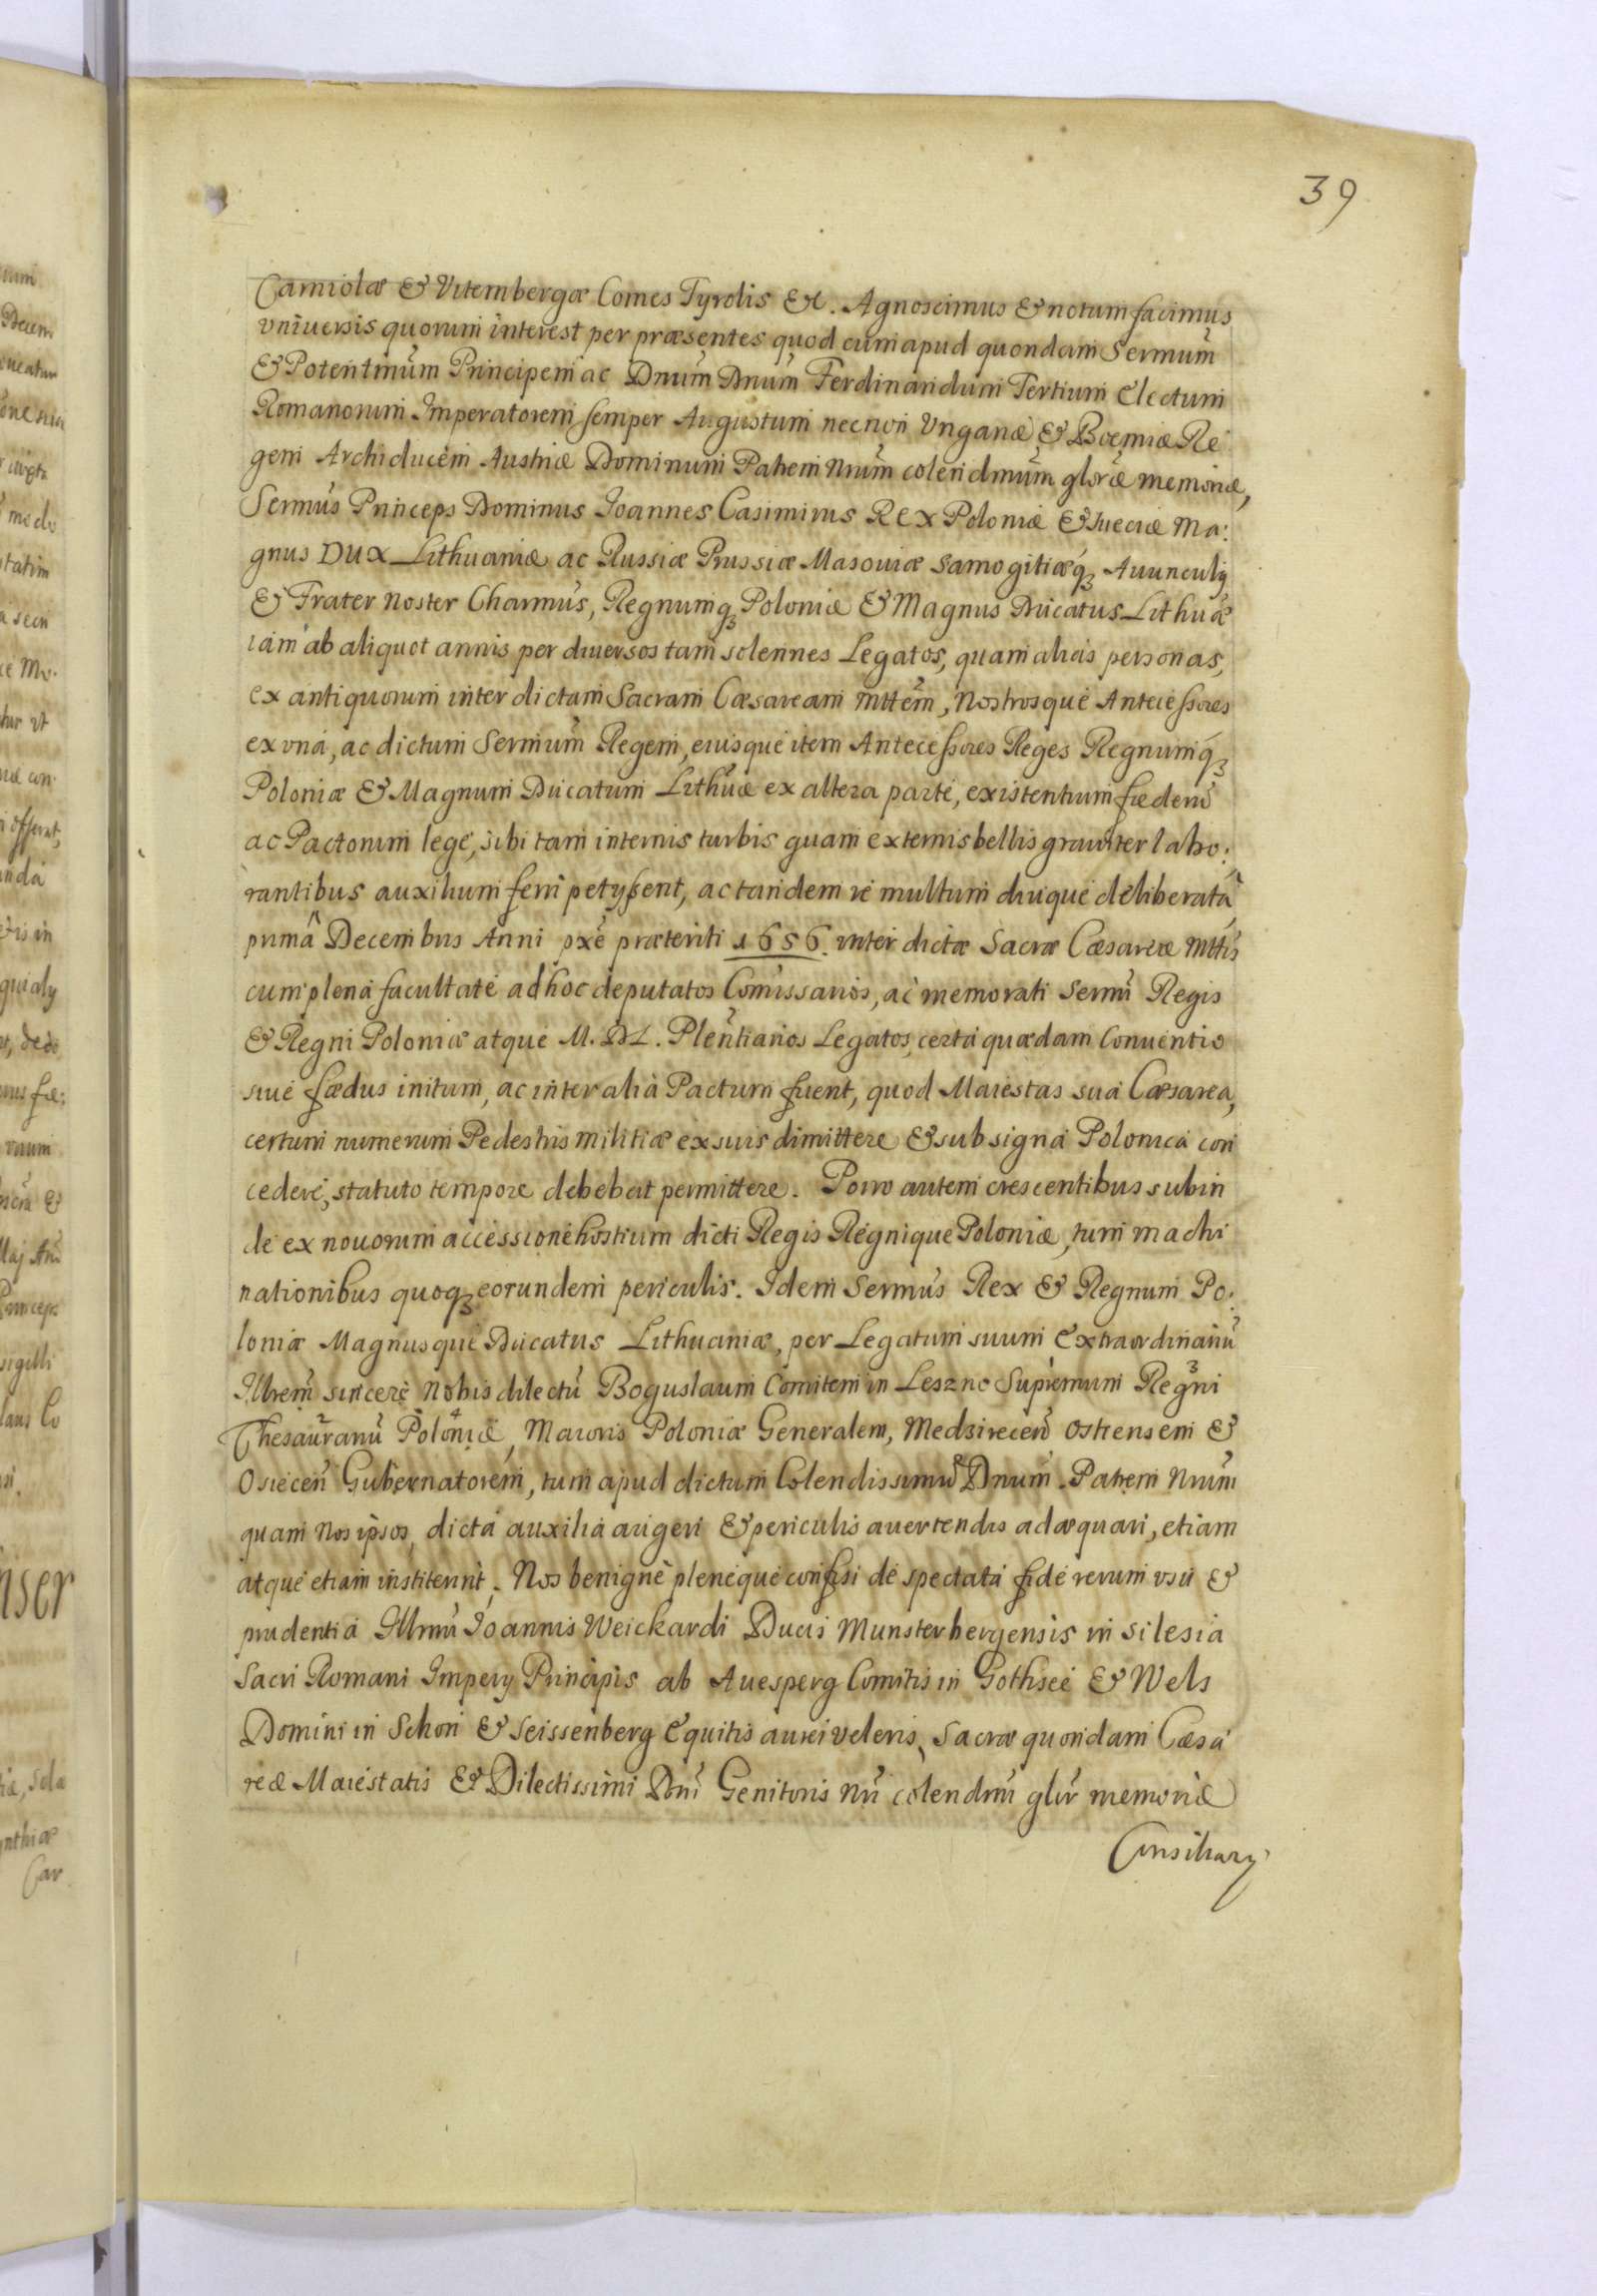 39
Carniolæ & Vitembergæ Comes Tyrolis &c. Agnoscimus & notum facimus
vniuersis quorum interest per præsentes quod cum apud quondam Sermum
& Potentmum Principem ac Dnum Dnum Ferdinandum Tertium Electum
Romanorum Imperatorem semper Augustum necnon Vngariæ & Boemiæ Re
gem Archiducem Austriæ Dominum Patrem Nrum colendmum gloræ memoriæ,
Sermus Princeps Dominus Joannes Casimirus Rex Poloniæ & Sueciæ Ma:
gnus Dux Lithuaniæ ac Russiæ Prussiæ Masouiæ Samogitiæq Auunculy
& Frater Noster Charmus, Regnumq Poloniæ & Magnus Ducatus Lithuæ
iam ab aliquot annis per diuersos tam solennes Legatos, quam alias personas,
ex antiquorum inter dictam Sacram Cæsaream Mttem, Nostrosque Antecessores
ex vna, ac dictum Sermum Regem, eiusque item Antecessores Reges Regnumq
Poloniæ & Magnum Ducatum Lithuæ ex altera parte, existentium fœderu
ac Pactorum lege, sibi tam internis turbis quam externis bellis grauiter labo:
rantibus auxilium ferri petyssent, ac tandem re multum diuque deliberatâ
primâ Decembris Anni pxe præteriti 1656. inter dictæ Sacræ Cæsareæ Mttis
cum plena facultate ad hoc deputatos Comissarios, ac memorati Sermi Regis
& Regni Poloniæ atque M. D L. Plentiarios Legatos, certa quædam Conuentio
siue fœdus initum, ac inter alia Pactum fuerit, quod Maiestas sua Cæsarea,
certum numerum Pedestris militiæ ex suis dimittere & sub signa Polonica con
cedere, statuto tempore debebat permittere. Porro autem crescentibus subin
de ex nouorum accessione hostium dicti Regis Regnique Poloniæ, tum machi
nationibus quoq eorundem periculis. Idem Sermus Rex & Regnum Po:
loniæ Magnusque Ducatus Lithuaniæ, per Legatum suum Extraordinariu
Illrem sincere Nobis dilectu Boguslaum Comitem in Leszno Supremum Regni
Thesaurariu Poloniæ, Maioris Poloniæ Generalem, Medzirecen Ostrensem &
Osiecen Gubernatorem, tum apud dictum Colendissimu Dnum Patrem Nrum
quam Nos ipsos, dicta auxilia augeri & periculis auertendis adæquari, etiam
atque etiam institerint. Nos benigne pleneque confisi de spectata fide rerum vsu &
prudentia Illmi Joannis Weickardi Ducis Munsterbergensis in Silesia
Sacri Romani Impery Principis ab Auesperg Comitis in Gothsee & Wels
Domini in Schon & Seissenberg Equitis aurei veleris, Sacræ quondam Cæsa
reæ Maiestatis & Dilectissimi Dni Genitoris Nri colendmi glor memoriæ
Consiliary